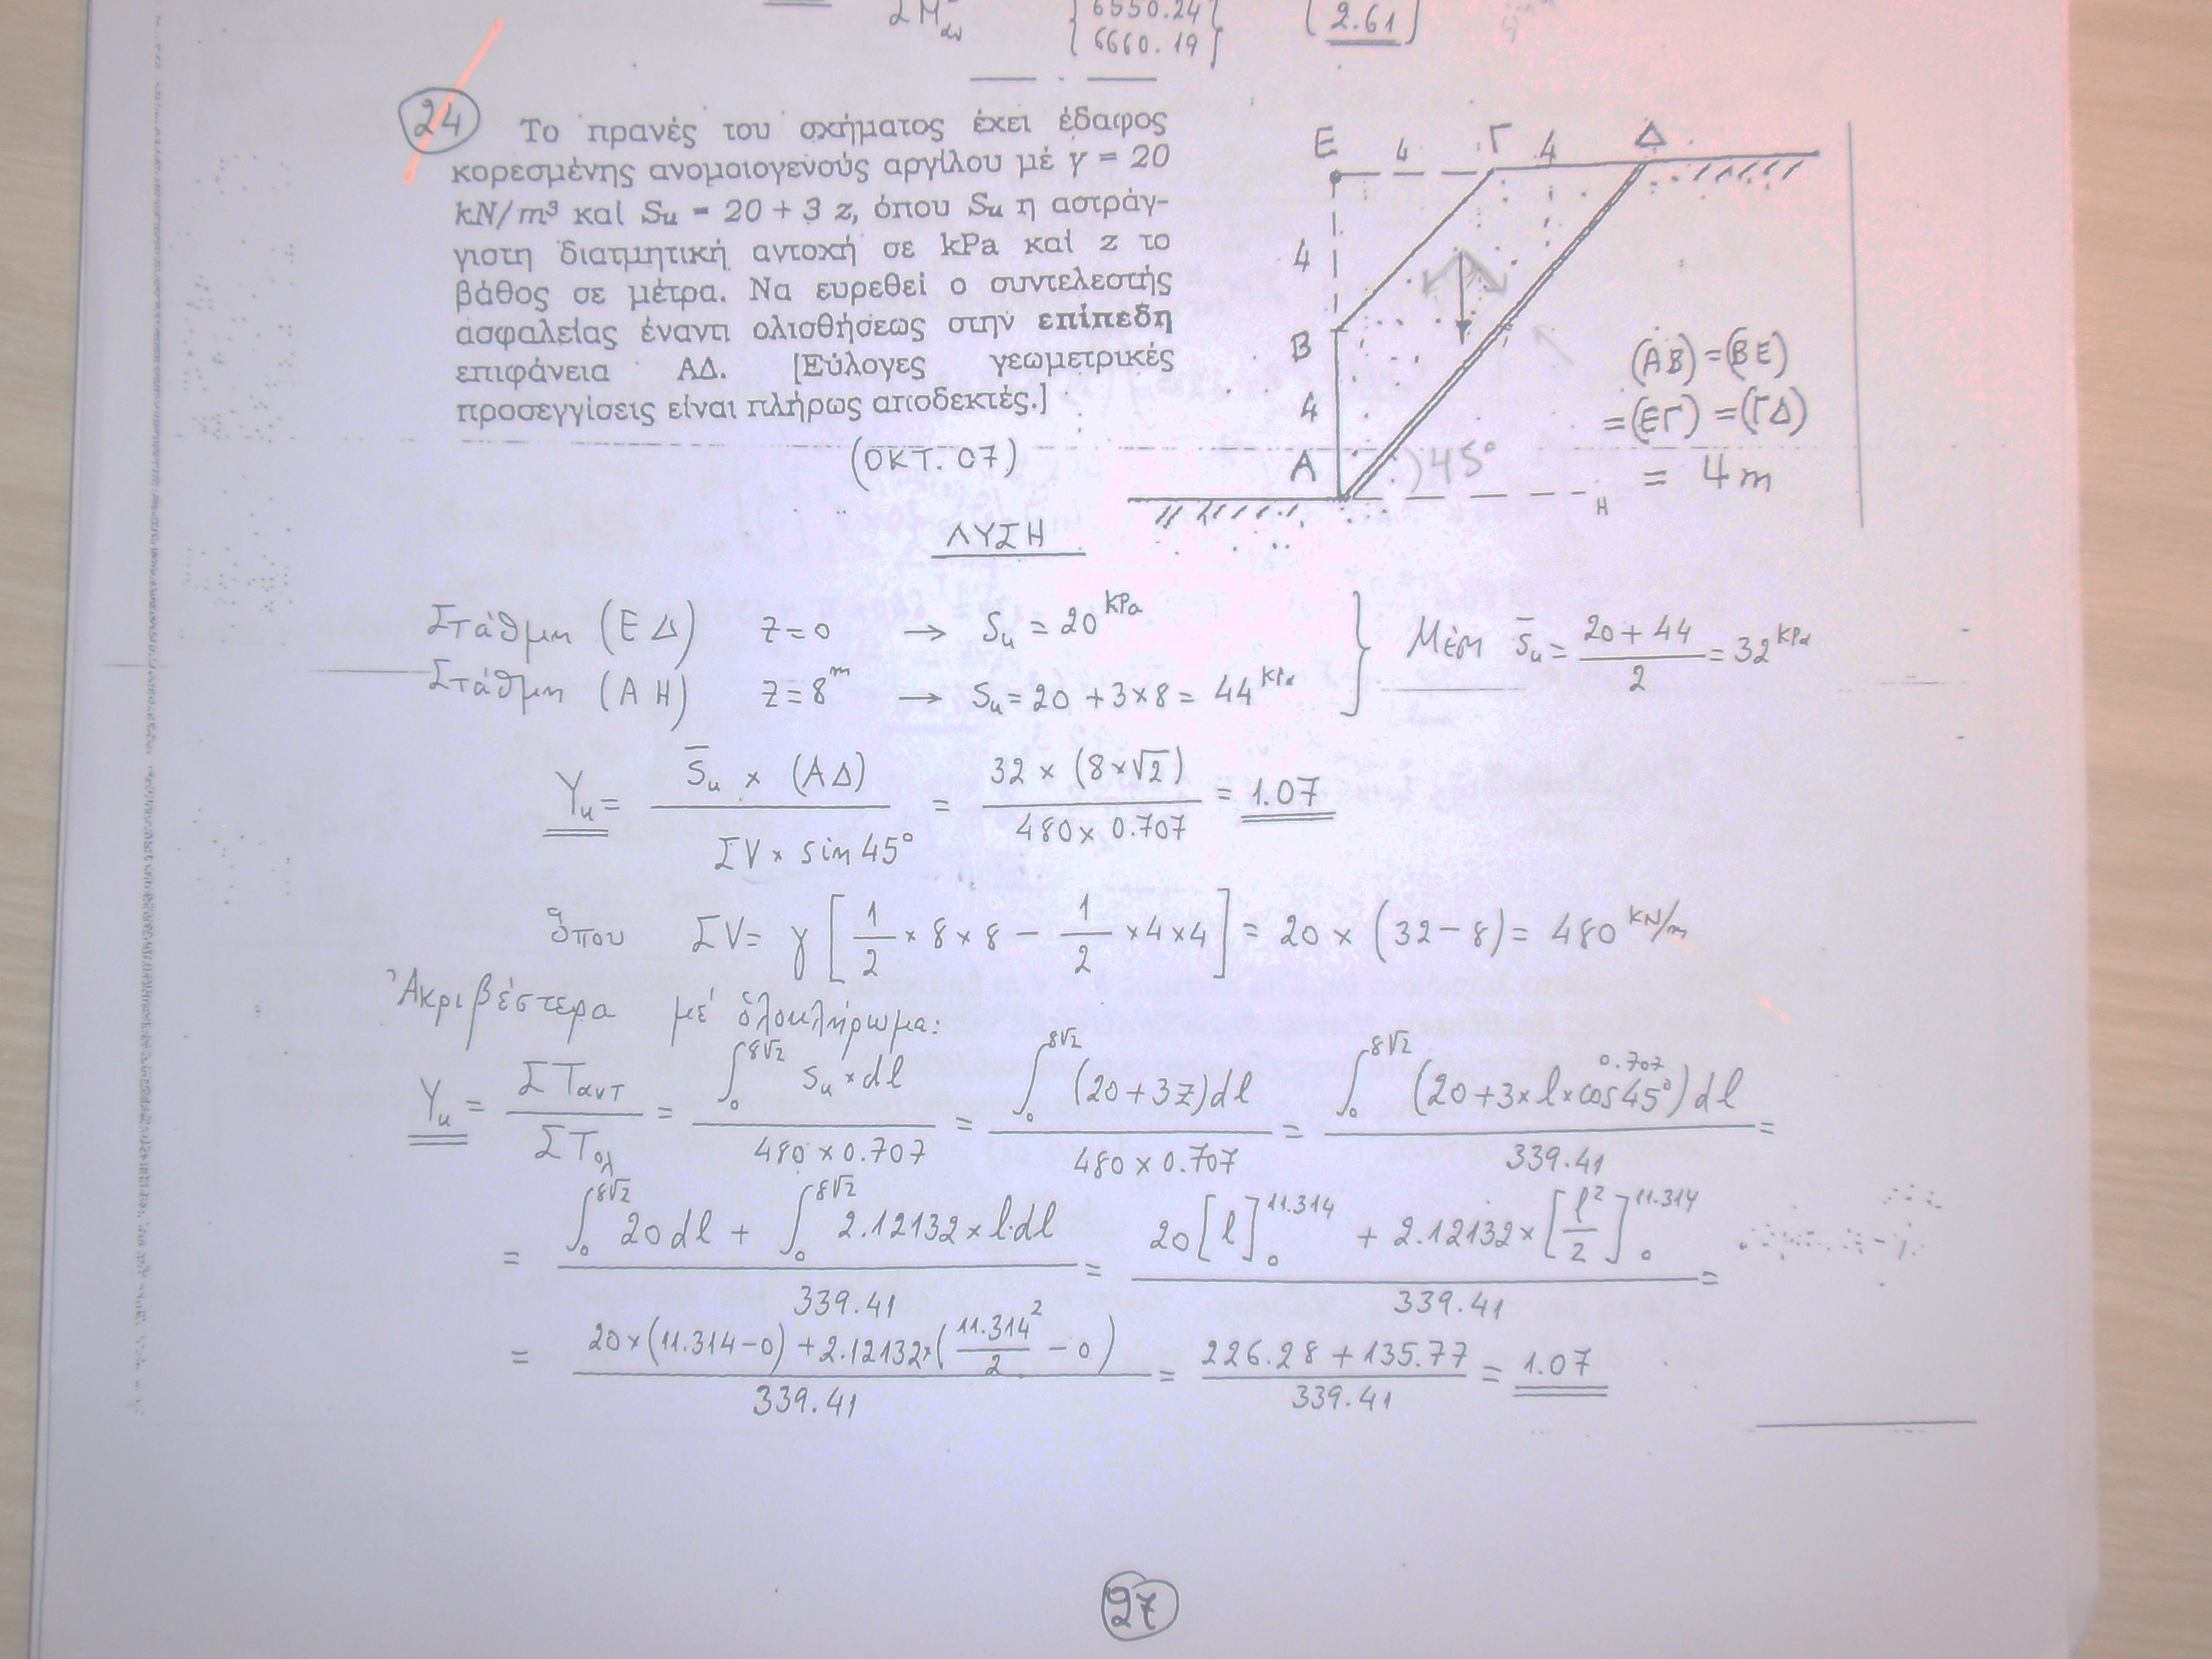 6550.24
2.61
6660.19
24
Το πρανές του σχήματος έχει έδαφος
κορεσμένης ανομοιογενούς αργίλου μέ γ = 20
kN/m³ καί Su = 20 + 3 z, όπου Su η αστράγ-
γιστη διατμητική αντοχή σε kPa καί z το
βάθος σε μέτρα. Να ευρεθεί ο συντελεστής
ασφαλείας έναντι ολισθήσεως στην επίπεδη
επιφάνεια ΑΔ. [Εύλογες γεωμετρικές
προσεγγίσεις είναι πλήρως αποδεκτές.]
(ΟΚΤ. 07)
Ε 4 Γ 4 Δ
4
Β
4
Α 45° Η
(ΑΒ)=(ΒΕ)
=(ΕΓ)=(ΓΔ)
= 4 m
ΛΥΣΗ
Στάθμη (ΕΔ) z=0 → Su = 20 kPa
Στάθμη (ΑΗ) z=8 m → Su = 20 + 3×8 = 44 kPa } Μέση S̄u = (20+44)/2 = 32 kPa
Υu = S̄u × (ΑΔ) / ΣV × sin45° = 32 × (8×√2) / 480 × 0.707 = 1.07
ὅπου ΣV = γ [1/2 × 8 × 8 − 1/2 × 4 × 4] = 20 × (32−8) = 480 KN/m
Ἀκριβέστερα μέ ὁλοκλήρωμα:
Υu = ΣΤαντ / ΣΤολ = ∫₀^8√2 Su × dl / 480 × 0.707 = ∫₀^8√2 (20+3z)dl / 480 × 0.707 = ∫₀^8√2 (20+3×l×cos45° 0.707) dl / 339.41 =
= ∫₀^8√2 20 dl + ∫₀^8√2 2.12132 × l·dl / 339.41 = 20[l]₀^11.314 + 2.12132 × [l²/2]₀^11.314 / 339.41 =
= 20×(11.314−0) + 2.12132×(11.314²/2 − 0) / 339.41 = 226.28 + 135.77 / 339.41 = 1.07
27